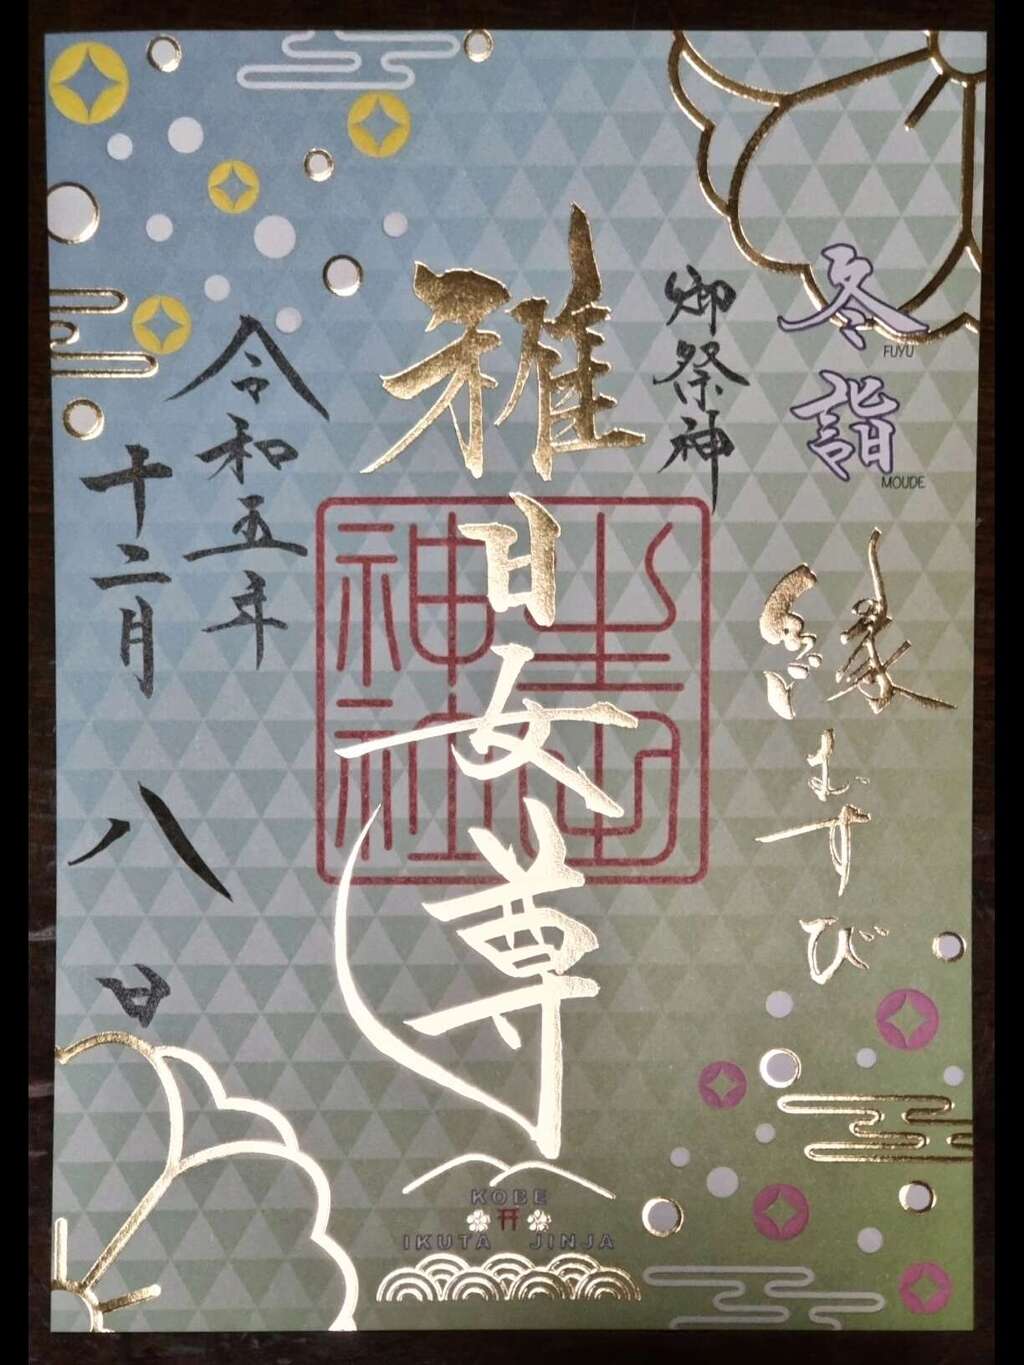 冬詣
FUYU
MOUDE
縁結び
むすび
御祭神
稚日女尊
生田
神社
令和五年
十二月八日
KOBE
IKUTA JINJA